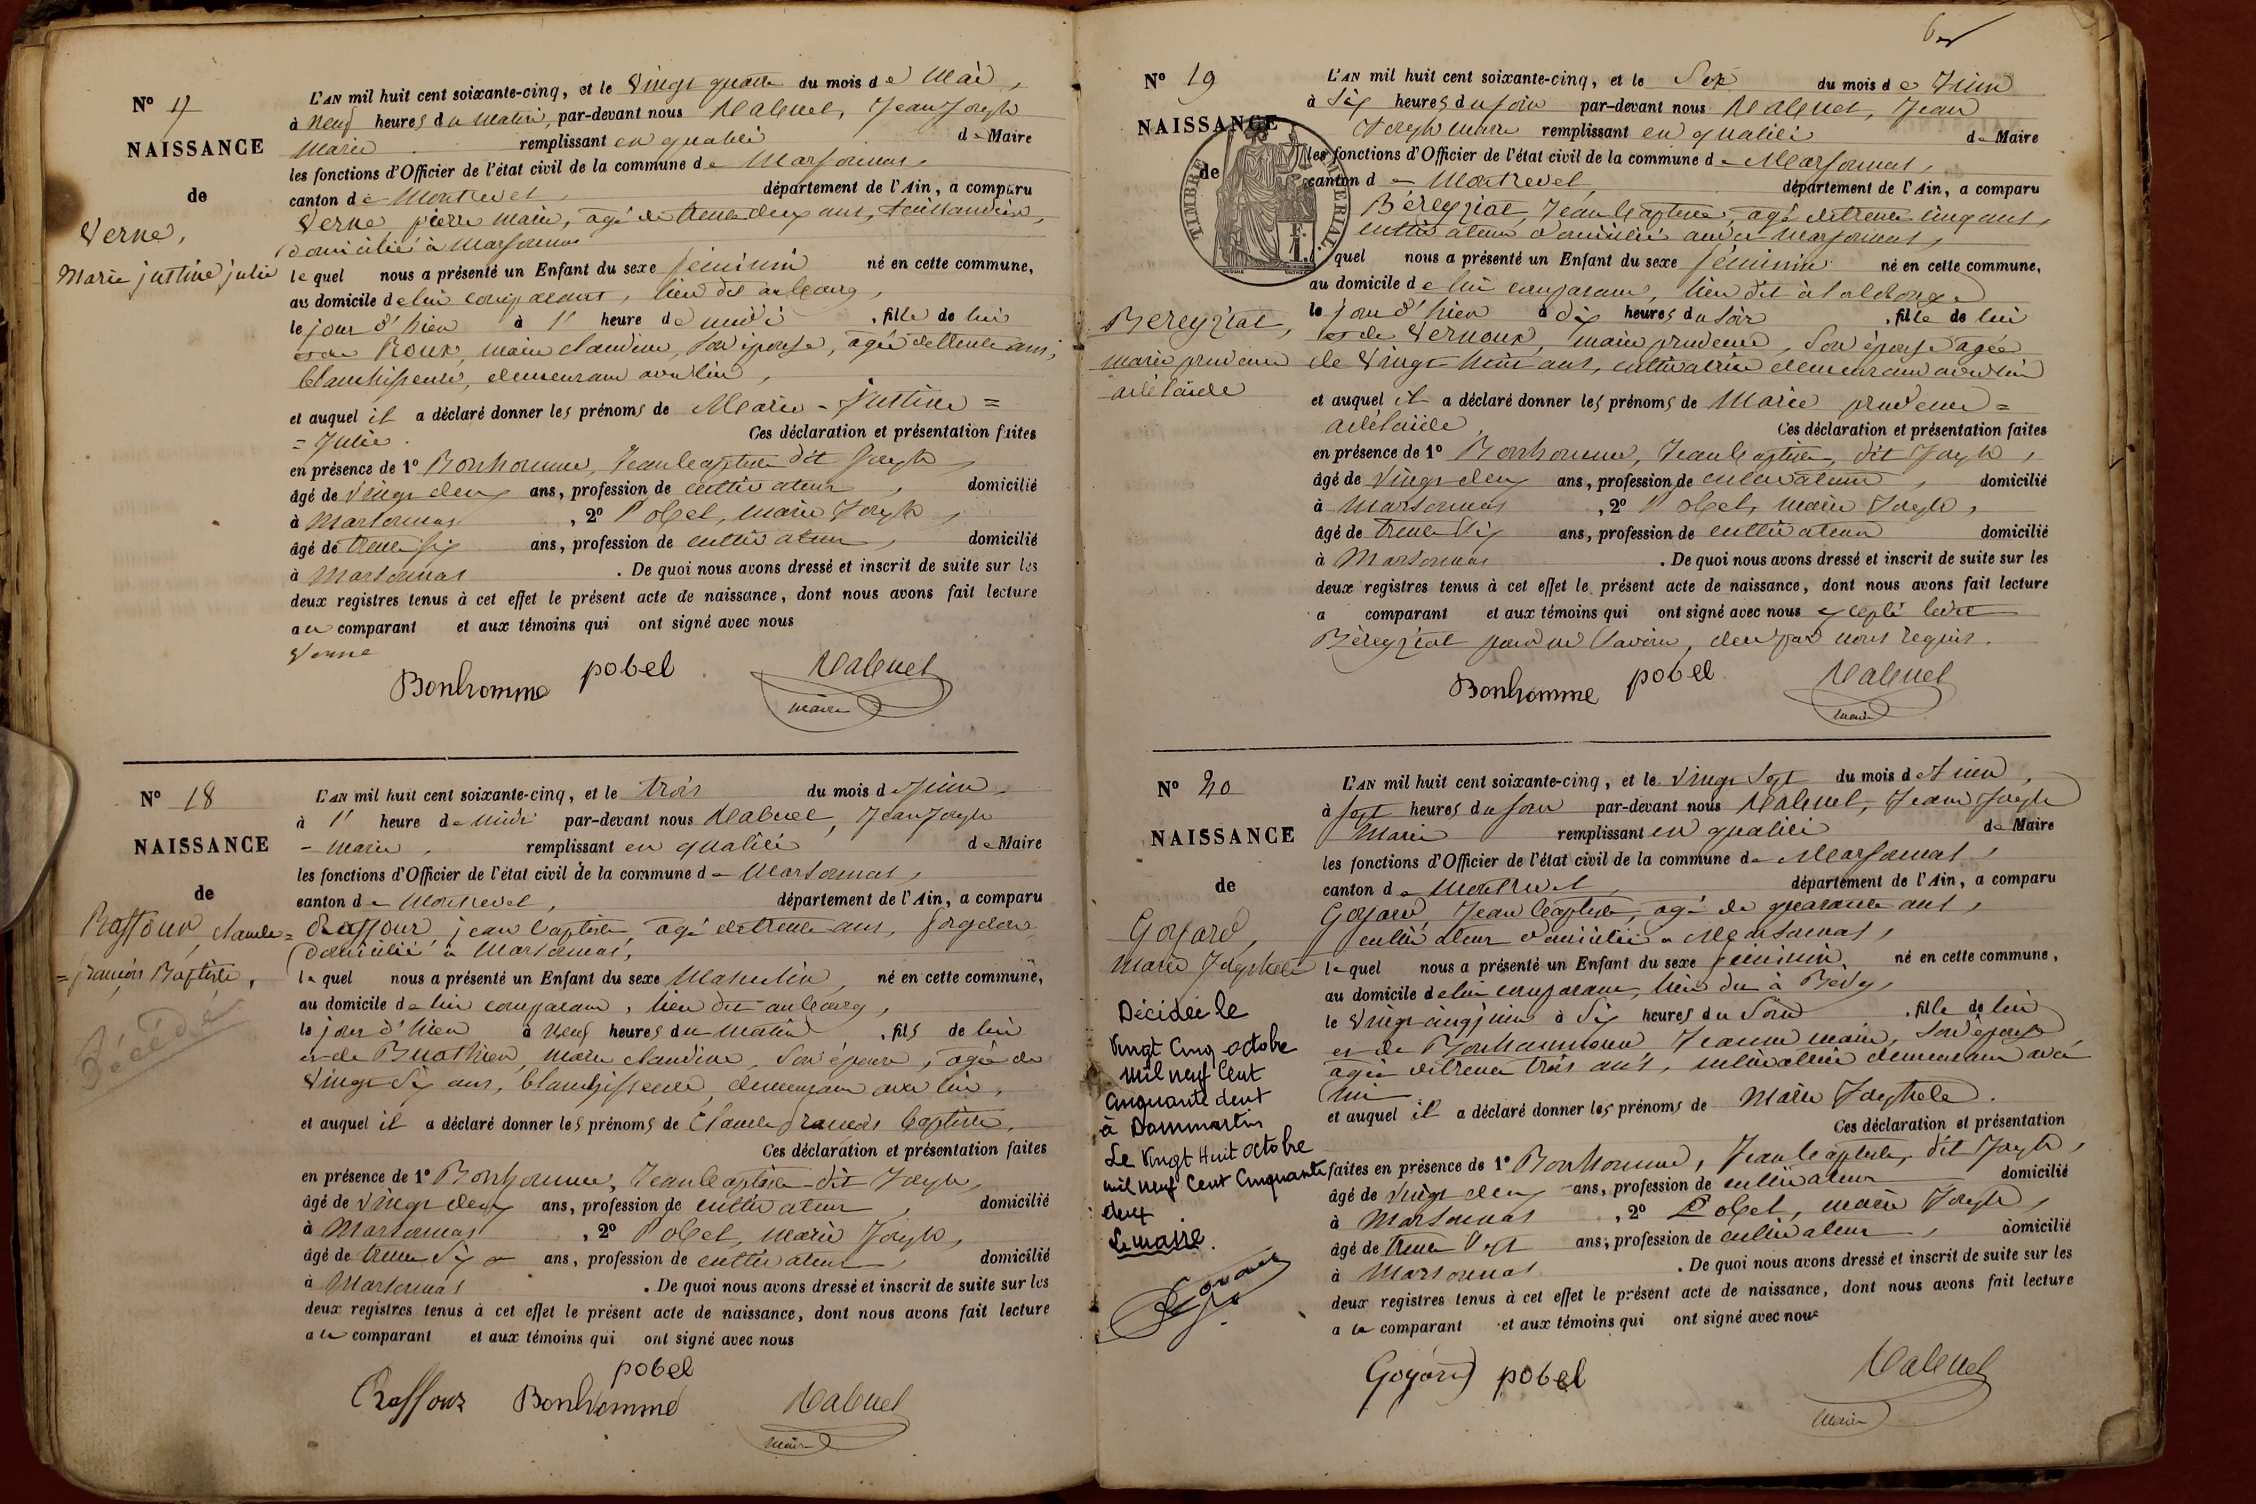 N° 17
NAISSANCE
de
Verne,
Marie justine julie
L'AN mil huit cent soixante-cinq, et le Vingt quatre du mois de Mai,
à Neuf heures du matin, par-devant nous Jean Joseph
Marie remplissant en qualité de Maire
les fonctions d'Officier de l'état civil de la commune de Marsonnas,
canton de Montrevel, département de l'Ain, a comparu
Verne, pierre marie, agé de trente deux ans,
domicilié à Marsonnas
lequel nous a présenté un Enfant du sexe féminin né en cette commune,
au domicile de lui comparant, lieu dit au bourg,
le jour d'hier à 1 heure de midi, fille de lui
et de Roux, marie claudine, son épouse, agée de trente ans,
blanchisseuse, demeurant avec lui,
et auquel il a déclaré donner les prénoms de Marie - Justine =
= Julie. Ces déclaration et présentation faites
en présence de 1° Bonhomme, Jean Baptiste dit Joseph,
âgé de vingt deux ans, profession de cultivateur, domicilié
à Marsonnas, 2° Pobel, marie Joseph,
âgé de trente six ans, profession de cultivateur, domicilié
à Marsonnas. De quoi nous avons dressé et inscrit de suite sur les
deux registres tenus à cet effet le présent acte de naissance, dont nous avons fait lecture
au comparant et aux témoins qui ont signé avec nous
Verne
Bonhomme pobel
maire
N° 18
NAISSANCE
de
Raffour, claude =
= françois Baptiste,
Décédé
L'AN mil huit cent soixante-cinq, et le trois du mois de Juin,
à 1 heure de midi par-devant nous Jean Joseph
- marie, remplissant en qualité de Maire
les fonctions d'Officier de l'état civil de la commune de Marsonnas,
canton de Montrevel, département de l'Ain, a comparu
Raffour, jean baptiste, agé de trente ans, forgeron
domicilié à Marsonnas,
lequel nous a présenté un Enfant du sexe Masculin, né en cette commune,
au domicile de lui comparant, lieu dit au bourg,
le jour d'hier à Neuf heures du matin, fils de lui
et de Buathier, marie claudine, son épouse, agée de
Vingt six ans, blanchisseuse, demeurant avec lui,
et auquel il a déclaré donner les prénoms de Claude françois baptiste.
Ces déclaration et présentation faites
en présence de 1° Bonhomme, Jean baptiste dit Joseph,
âgé de vingt deux ans, profession de cultivateur, domicilié
à Marsonnas, 2° Pobel, marie Joseph,
âgé de trente six ans, profession de cultivateur, domicilié
à Marsonnas. De quoi nous avons dressé et inscrit de suite sur les
deux registres tenus à cet effet le présent acte de naissance, dont nous avons fait lecture
au comparant et aux témoins qui ont signé avec nous
pobel
Raffour Bonhomme
maire
N° 19
NAISSANCE
de
TIMBRE IMPERIAL
Bereyziat,
marie prudence
adélaïde
L'AN mil huit cent soixante-cinq, et le Sept du mois de Juin
à Six heures du soir par-devant nous Jean
Joseph marie remplissant en qualité de Maire
les fonctions d'Officier de l'état civil de la commune de Marsonnas,
canton de Montrevel, département de l'Ain, a comparu
Béreyziat, Jean baptiste, agé de trente cinq ans,
cultivateur domicilié Marsonnas,
quel nous a présenté un Enfant du sexe féminin né en cette commune,
au domicile de lui comparant, lieu dit
le jour d'hier à dix heures du soir, fille de lui
et de Vernoux, marie prudence, son épouse agée
de Vingt huit ans, cultivatrice demeurant avec lui
et auquel il a déclaré donner les prénoms de Marie prudence =
adélaïde, Ces déclaration et présentation faites
en présence de 1° Bonhomme, Jean baptiste, dit Joseph,
âgé de Vingt deux ans, profession de cultivateur, domicilié
à Marsonnas, 2° Pobel, marie Joseph,
âgé de trente six ans, profession de cultivateur domicilié
à Marsonnas. De quoi nous avons dressé et inscrit de suite sur les
deux registres tenus à cet effet le présent acte de naissance, dont nous avons fait lecture
a comparant et aux témoins qui ont signé avec nous excepté ledit
Béreyziat pour ne savoir, de par nous requis.
Bonhomme pobel
maire
N° 20
NAISSANCE
de
Goyard,
Marie Josephele
Décidée le
Vingt Cinq octobre
Mil neuf Cent
Cinquante deux
à Dommartin
Le Vingt Huit octobre
mil neuf Cent Cinquante
deux
Le maire.
L'AN mil huit cent soixante-cinq, et le Vingt Sept du mois de Juin,
à sept heures du soir par-devant nous Jean Joseph
Marie remplissant en qualité de Maire
les fonctions d'Officier de l'état civil de la commune de Marsonnas,
canton de Montrevel, département de l'Ain, a comparu
Goyard, Jean baptiste, agé de quarante ans,
cultivateur domicilié à Marsonnas,
lequel nous a présenté un Enfant du sexe féminin, né en cette commune,
au domicile de lui comparant, lieu dit à
le Vingt cinq juin à Six heures du Soir, fille de lui
et de Jeanne marie, son épouse
agée de trente trois ans, cultivatrice demeurant avec
lui
et auquel il a déclaré donner les prénoms de Marie Josephele.
Ces déclaration et présentation
faites en présence de 1° Bonhomme, Jean baptiste, dit Joseph,
âgé de Vingt deux ans, profession de cultivateur domicilié
à Marsonnas, 2° Pobel, marie Joseph,
âgé de trente Sept ans, profession de cultivateur, domicilié
à Marsonnas. De quoi nous avons dressé et inscrit de suite sur les
deux registres tenus à cet effet le présent acte de naissance, dont nous avons fait lecture
au comparant et aux témoins qui ont signé avec nous
Goyard pobel
maire